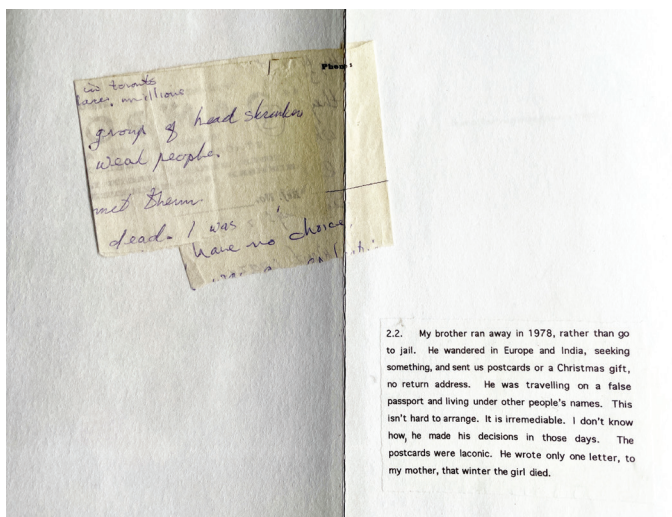 Phone:
in toronto
millions
group of head
weak people.
met them.
dead. I was
have no choice.
2.2. My brother ran away in 1978, rather than go
to jail. He wandered in Europe and India, seeking
something, and sent us postcards or a Christmas gift,
no return address. He was travelling on a false
passport and living under other people's names. This
isn't hard to arrange. It is irremediable. I don't know
how, he made his decisions in those days. The
postcards were laconic. He wrote only one letter, to
my mother, that winter the girl died.